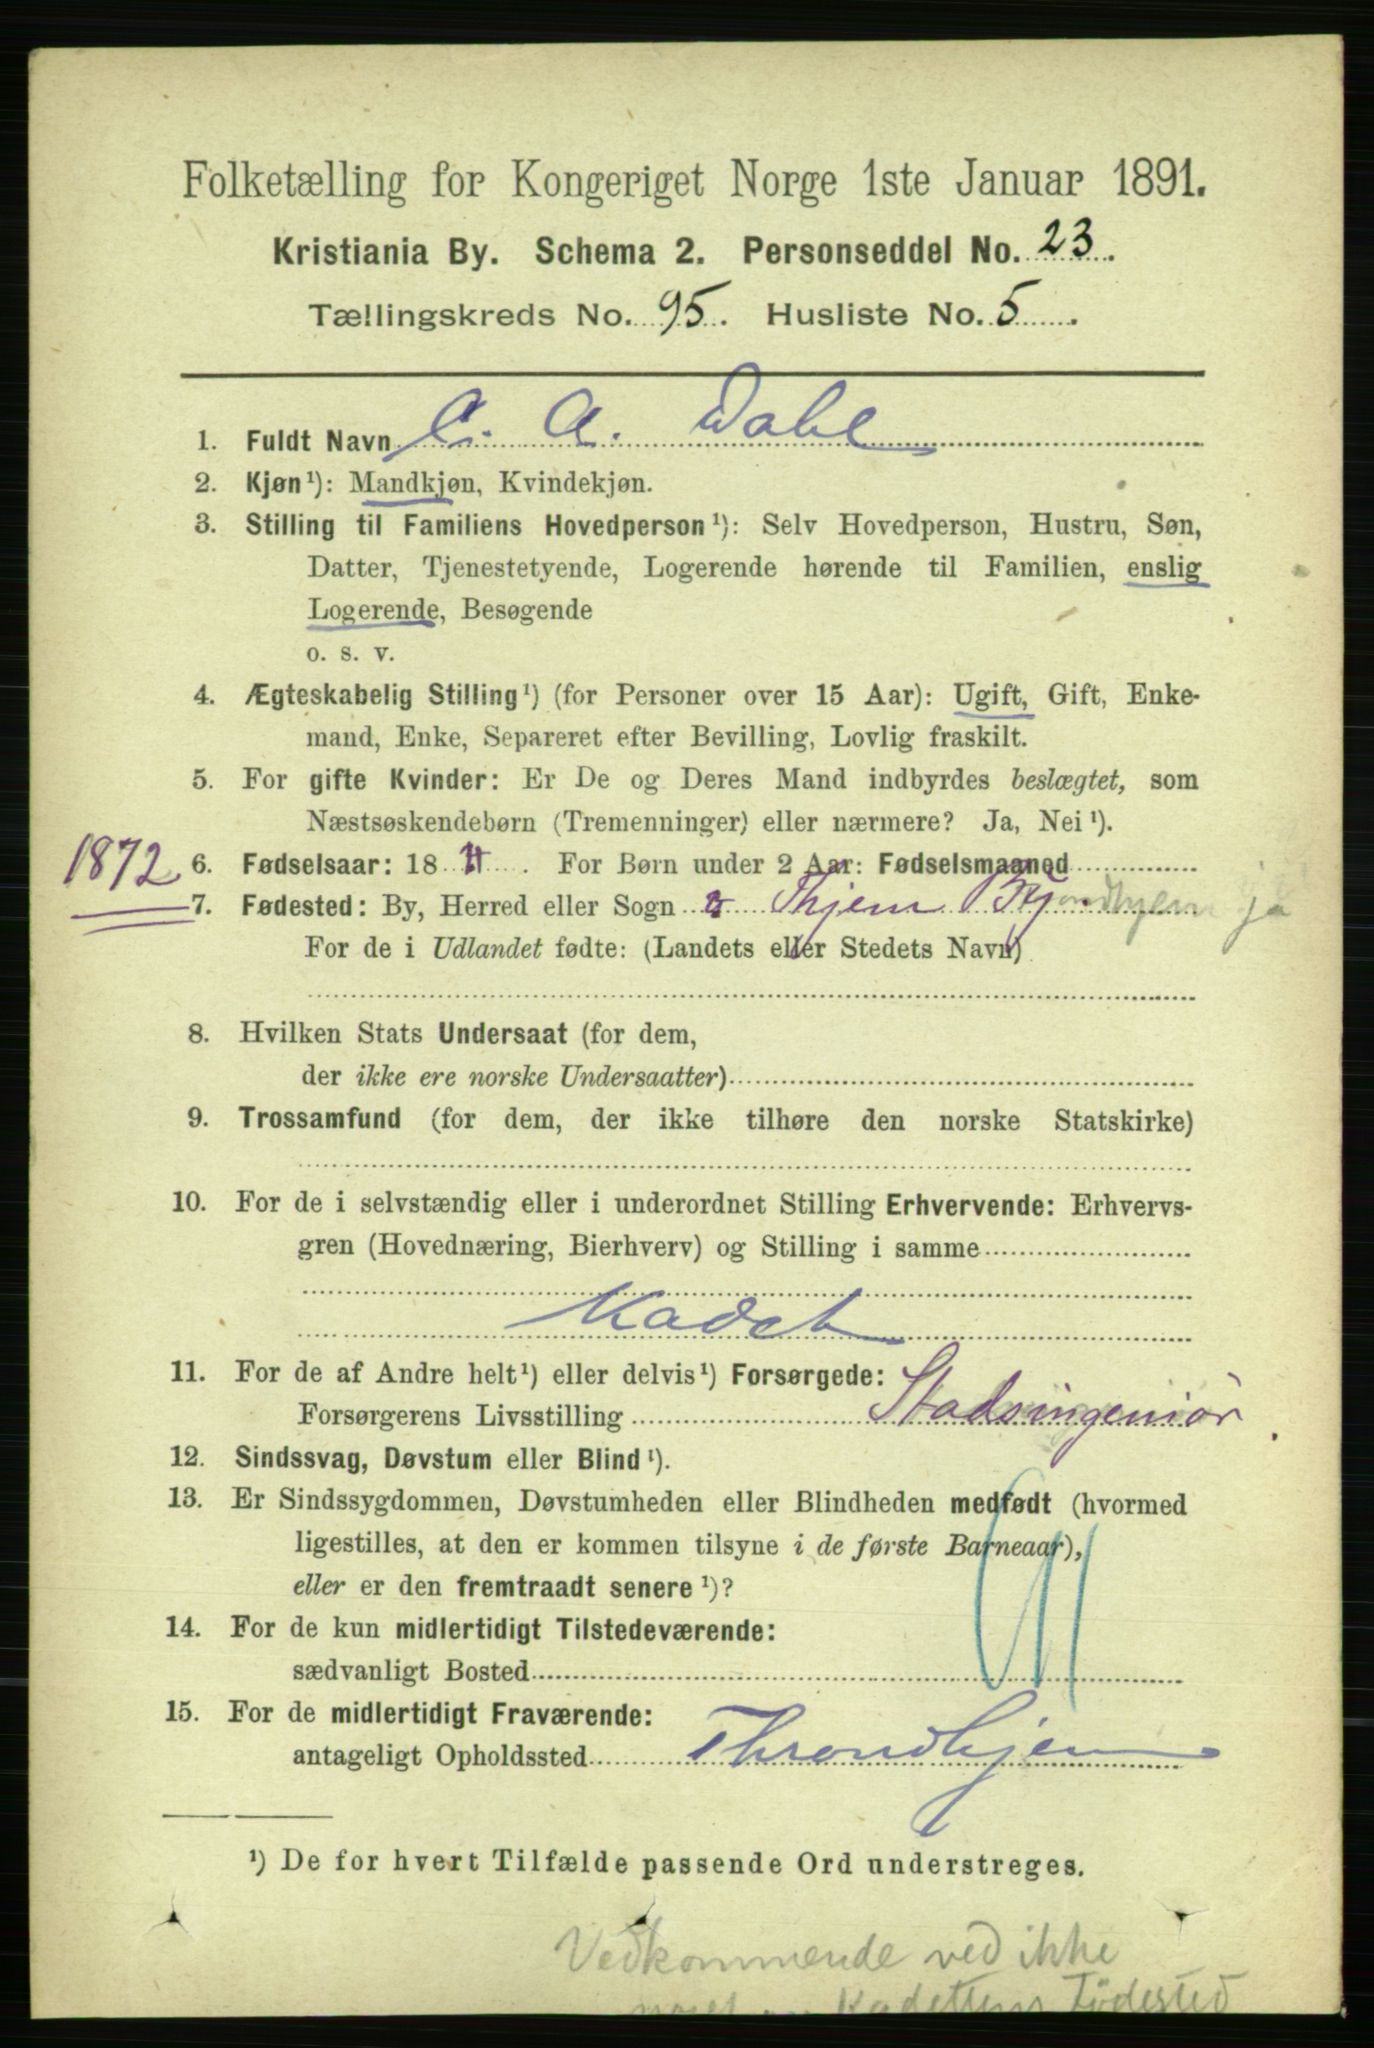 Folketælling for Kongeriget Norge 1ste Januar 1891.
Kristiania By. Schema 2. Personseddel No. 23.
Tællingskreds No. 95. Husliste No. 5.
1. Fuldt Navn C. A. Dahl
2. Kjøn ¹): Mandkjøn, Kvindekjøn.
3. Stilling til Familiens Hovedperson ¹): Selv Hovedperson, Hustru, Søn,
Datter, Tjenestetyende, Logerende hørende til Familien, enslig
Logerende, Besøgende
o. s. v.
4. Ægteskabelig Stilling ¹) (for Personer over 15 Aar): Ugift, Gift, Enke-
mand, Enke, Separeret efter Bevilling, Lovlig fraskilt.
5. For gifte Kvinder: Er De og Deres Mand indbyrdes beslægtet, som
Næstsøskendebørn (Tremenninger) eller nærmere? Ja, Nei ¹).
1872
6. Fødselsaar: 18 . For Børn under 2 Aar: Fødselsmaaned
7. Fødested: By, Herred eller Sogn Thjem By
For de i Udlandet fødte: (Landets eller Stedets Navn)
8. Hvilken Stats Undersaat (for dem,
der ikke ere norske Undersaatter)
9. Trossamfund (for dem, der ikke tilhøre den norske Statskirke)
10. For de i selvstændig eller i underordnet Stilling Erhvervende: Erhvervs-
gren (Hovednæring, Bierhverv) og Stilling i samme
Kadet
11. For de af Andre helt ¹) eller delvis ¹) Forsørgede:
Forsørgerens Livsstilling Stadsingeniör
12. Sindssvag, Døvstum eller Blind ¹).
13. Er Sindssygdommen, Døvstumheden eller Blindheden medfødt (hvormed
ligestilles, at den er kommen tilsyne i de første Barneaar),
eller er den fremtraadt senere ¹)?
14. For de kun midlertidigt Tilstedeværende:
sædvanligt Bosted
15. For de midlertidigt Fraværende:
antageligt Opholdssted Throndhjem
¹) De for hvert Tilfælde passende Ord understreges.
Vedkommende ved ikke
noget om Kadettens Födested